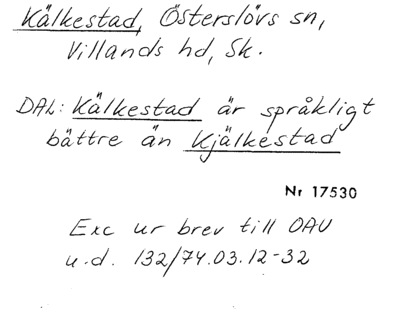 Kälkestad, Österslövs sn,
Villands hd, Sk.
DAL: Kälkestad är språkligt
bättre än Kjälkestad
Nr 17530
Exc ur brev till OAU
u.d. 132/74.03.12-32